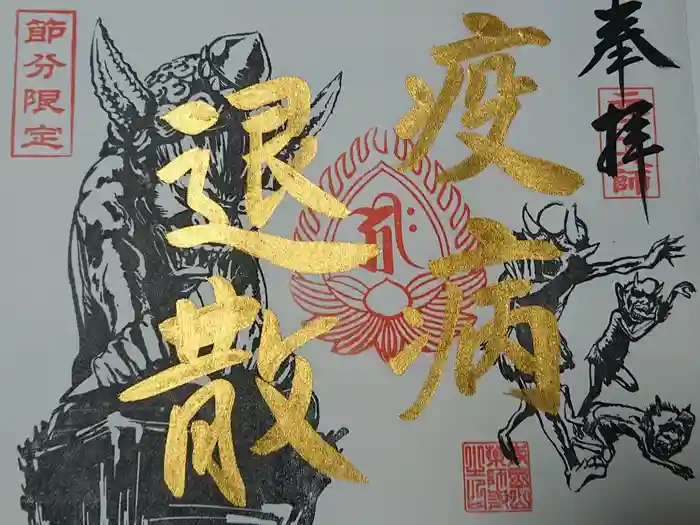 奉拝
疫病
退散
節分限定